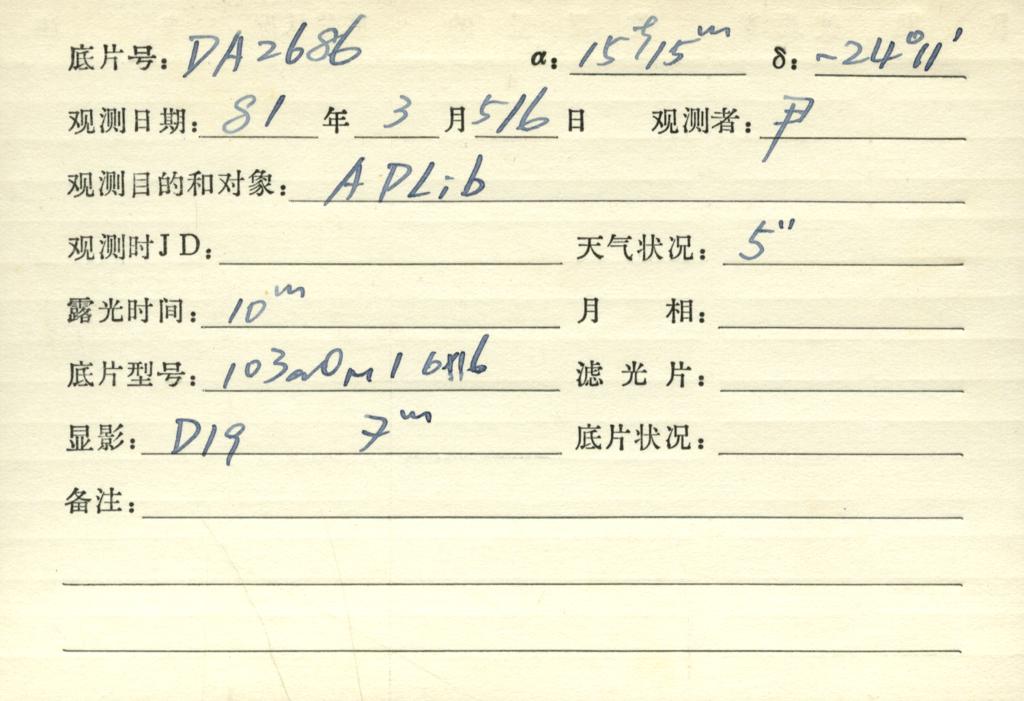 底片号: DA2686 α: 15ʰ15ᵐ δ: -24°11′
观测日期: 81 年 3 月 5/6 日 观测者: 尹
观测目的和对象: APLib
观测时JD: 天气状况: 5″
露光时间: 10ᵐ 月 相:
底片型号: 103aO 滤光片:
显影: D19 7ᵐ 底片状况:
备注: